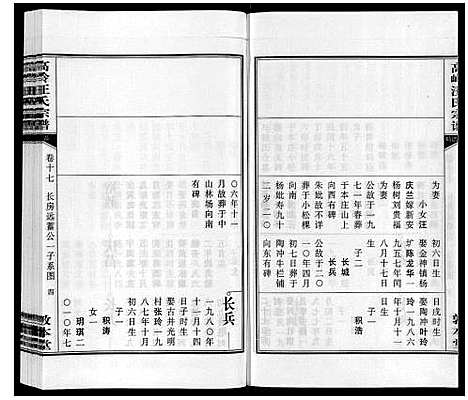 高岭汪氏宗谱
日戌时生
初六日生
小女汪
为妻
娶金神镇杨
庆兰嫁新安
圹陈龙华一
杨树刘贵福
为妻
日生
年十月十一
九五七年闰
生
公故于一九
七一年春葬
于本庄山上
向西有碑
朱妣故不详
葬于小松棵
向南
杨妣寿九十
二岁二〇一
子二
积浩
长城
长兵
公故于二〇
一〇年四月
初七日葬于
陶冲牛栏铺
向东有碑
〇六年十一
月故葬于中
山林场向南
有碑
长兵
一九八〇年
十一月十四
日子时生
娶古井光明
村张玲一九
八七年十月
初六日生
子一
积涛
女一
玥琪二
〇一〇年七
高岭汪氏宗谱
卷十七
长房远蓄公一子系图
四
敦本堂